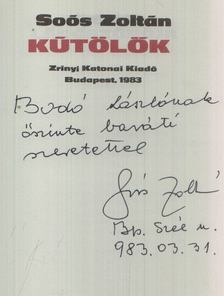 Soós Zoltán
KÚTÖLŐK
Zrínyi Katonai Kiadó
Budapest, 1983
Bodó Lászlónak
őszinte baráti
szeretettel
Soós Zoltán
Bp. Szée u.
983.03.31.